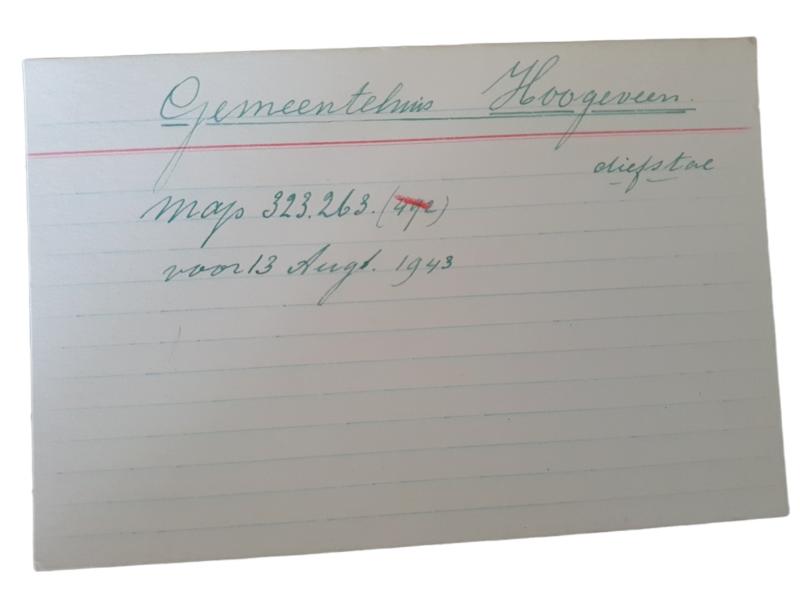 Gemeentehuis Hoogeveen.
diefstal
map 323.263.
voor 13 Augt. 1943